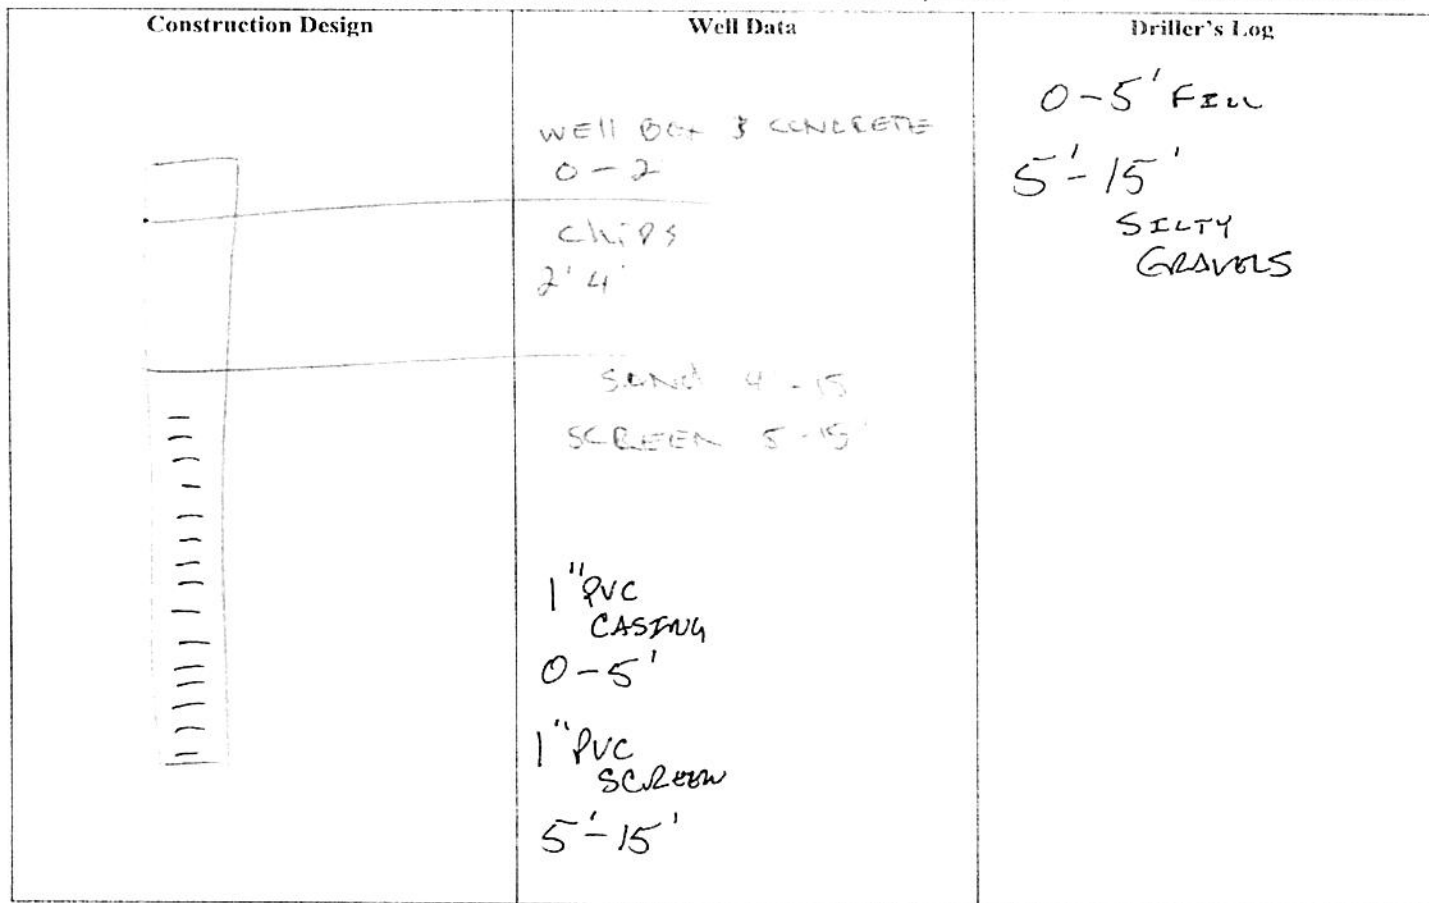 Construction Design
Well Data
Driller's Log
WELL BOX & CONCRETE
0-2
Chips
2' 4'
SAND 4-15
SCREEN 5-15'
1" PVC
CASING
0-5'
1" PVC
SCREEN
5'-15'
0-5' FILL
5'-15'
SILTY
GRAVELS